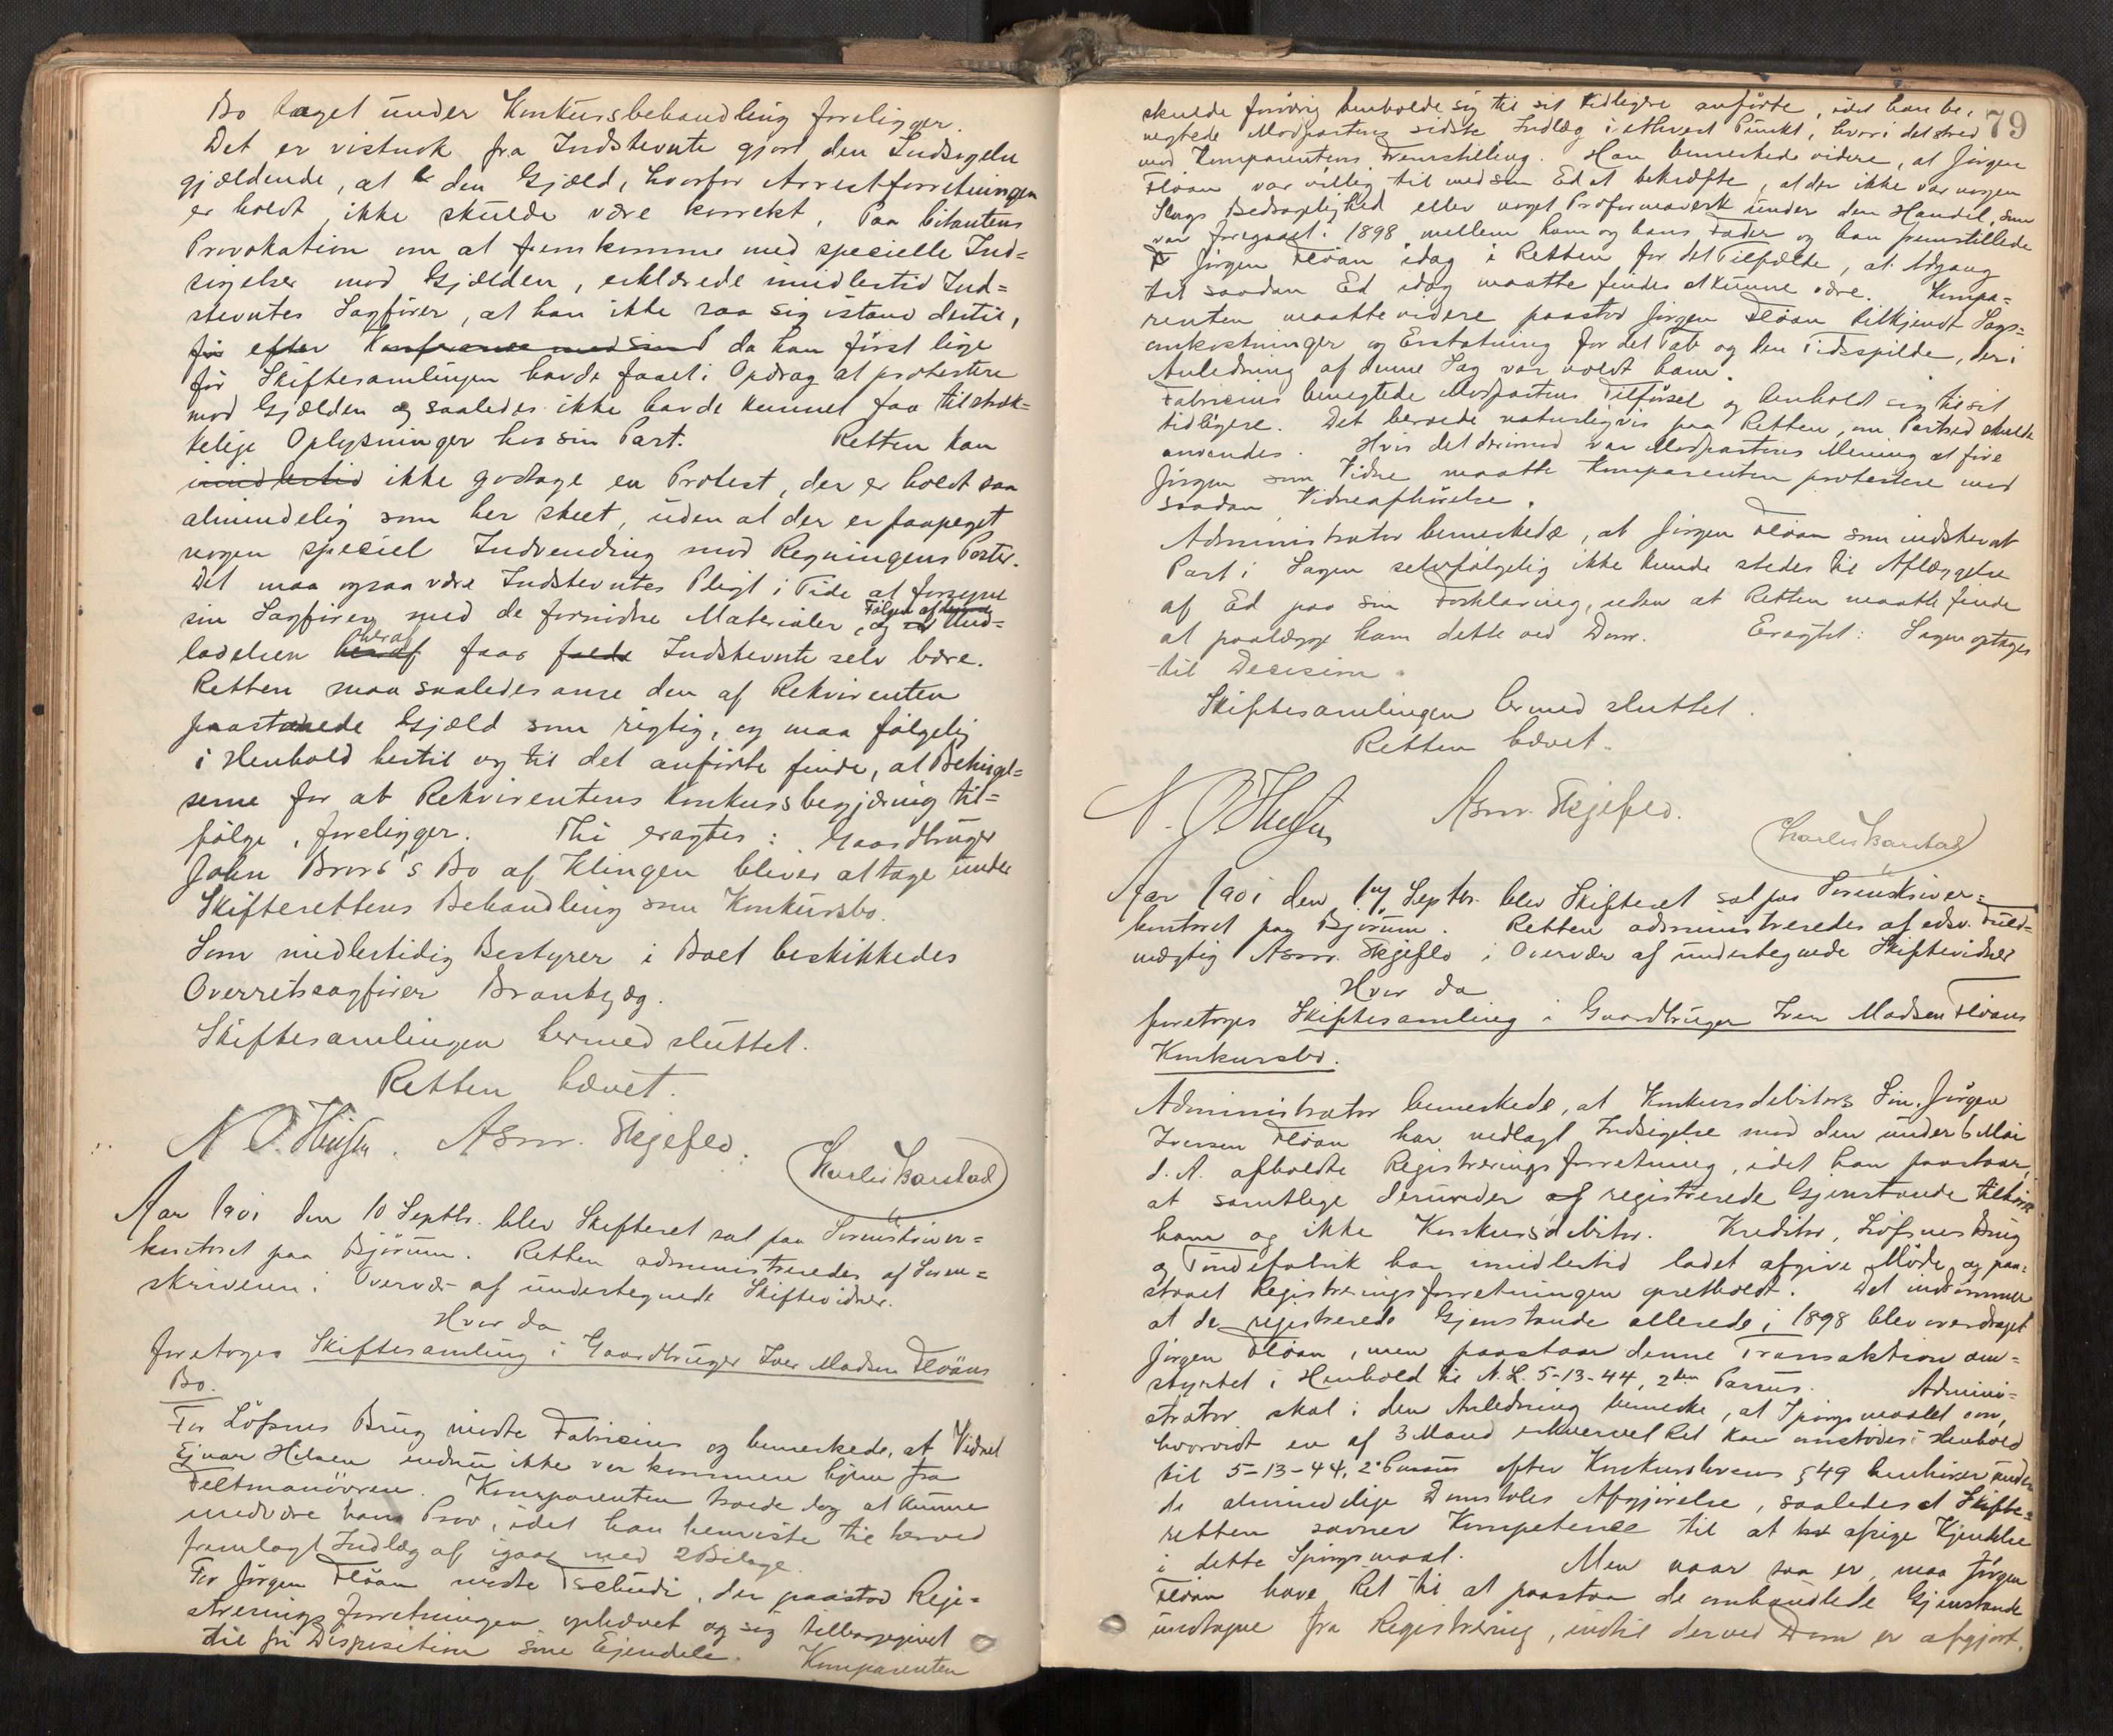 Bo taget under Konkursbehandling foreligger.
Det er vistnok fra Indstevnte gjort den Indsigeln
gjældende, at den Gjæld, hvorfor Arrestforretningen
er holdt, ikke skulde være korrekt. Paa Citantens
Provokation om at fremkomme med specielle Ind=
sigelser mod Gjælden, erklærede imidlertid Ind=
stevntes Sagfører, at han ikke saa sig istand dertil,
før efter Konferance med sin da han først lige
før Skiftesamlingen havde faaet i Opdrag at protestere
mod Gjælden og saaledes ikke havde kunnet faa tilstræk=
kelige Oplysninger hos sin Part. Retten kan
imidlertid ikke godtage en Protest, der er holdt saa
almindelig som her skeet, uden at der er paapeget
nogen speciel Indvending mod Regningens Poster.
Det maa ogsaa være Indstevntes Pligt i Tide at forsyne
sin Sagfører med de fornødne Materialer, og Følgen af Und=
ladelsen heraf faar Indstevnte selv bære.
Retten maa saaledes anse den af Rekvirenten
paastaaede Gjæld som rigtig, og maa følgelig
i Henhold hertil og til det anførte finde, at Betingel=
serne for at Rekvirentens Konkursbegjæring til=
følge, foreligger. Thi eragtes: Gaardbruger
John Brørs's Bo af Klingen bliver at tage under
Skifterettens Behandling som Konkursbo.
Som midlertidig Bestyrer i Boet beskikkedes
Overretssagfører Brantzæg.
Skiftesamlingen hermed sluttet.
Retten hævet.
Asmr. Skjeflo.
Charles Barstad
Aar 1901 den 10 Septbr. blev Skifteret sat paa Sorenskriver=
kontoret paa Bjørum. Retten administreredes af Soren=
skriveren i Overvær af undertegnede Skiftevidner.
Hvor da
foretoges Skiftesamling i Gaardbruger Iver Madsen Fløans
Bo.
For Løfsnes Brug mødte Fabricius og bemerkede, at Vidnet
Ejnar Helsen endnu ikke var kommen hjem fra
Feltmanøvren. Komparenten troede dog at kunne
undvære hans Prov, idet han henviste til herved
fremlagt Indlæg af igaar med 2 Bilage.
For Jørgen Fløan mødte Tschudi, der paastod Regi=
streringsforretningen ophævet og sig tilbagegivet
til fri Disposition sine Ejendele. Komparenten
79
skulde forøvrig henholde sig til sit tidligere anførte, idet han be=
negtede Modpartens sidste Indlæg i ethvert Punkt, hvori det stred
mod Komparentens Fremstilling. Han bemerkede videre, at Jørgen
Fløan var villig til med sin Ed at bekræfte, at der ikke var nogen
Slags Bedragelighed eller noget Proformaverk under den Handel, som
var foregaaet i 1898 mellem ham og hans Fader og han fremstillede
Jørgen Fløan idag i Retten for det Tilfælde, at Adgang
til saadan Ed idag maatte findes at kunne være. Kompa=
renten maatte videre paastod Jørgen Fløan tilkjendt Sags=
omkostninger og Erstatning for det Tab og den Tidsspilde, der i
Anledning af denne Sag var voldt ham.
Fabricius benegtede Modpartens Tilførsel og henholdt sig til sit
tidligere. Det beroede naturligvis paa Retten, om Partsed skulde
anvendes. Hvis det derimod var Modpartens Mening at føre
Jørgen som Vidne maatte Komparenten protestere mod
saadan Vidneafhørelse.
Administrator bemerkede, at Jørgen Fløan som indstevnt
Part i Sagen selvfølgelig ikke kunde stedes til Aflæggelse
af Ed paa sin Forklaring, uden at Retten maatte finde
at paalægge ham dette ved Dom. Eragtet: Sagen optages
til Decision.
Skiftesamlingen hermed sluttet.
Retten hævet.
Asmr. Skjeflo.
Charles Barstad
Aar 1901 den 17 Septbr. blev Skifteret sat paa Sorenskriver=
kontoret paa Bjørum. Retten administreredes af edsv. Fuld=
mægtig Asmr. Skjeflo i Overvær af undertegnede Skiftevidner
Hvor da
foretoges Skiftesamling i Gaardbruger Iver Madsen Fløans
Konkursbo.
Administrator bemerkede, at Konkursdebitors Søn, Jørgen
Iversen Fløan har nedlagt Indsigelse mod den under 6 Mai
d. A. afholdte Registreringsforretning, idet han paastaar,
at samtlige derunder registrerede Gjenstande tilhører
ham og ikke Konkursdebitor. Kreditor, Løfsnes Brug
og Tøndefabrik har imidlertid ladet afgive Møde og paa=
staaet Registreringsforretningen opretholdt. Det indrømmes
at de registrerede Gjenstande allerede i 1898 blev overdraget
Jørgen Fløan, men paastaar denne Transaktion om=
styrtet i Henhold til N.L. 5-13-44, 2den Passus. Admini=
strator skal i den Anledning bemerke, at Spørgsmaalet om,
hvorvidt en af 3 Mand erhvervet Ret kan omstødes i Henhold
til 5-13-44, 2. Passus efter Konkurslovens § 49 henhører under
de almindelige Domstoles Afgjørelse, saaledes at Skifte=
retten savner Kompetence til at afsige Kjendelse
i dette Spørgsmaal. Men naar saa er, maa Jørgen
Fløan have Ret til at paastaa de omhandlede Gjenstande
undtagne fra Registrering, indtil derved Dom er afgjort,